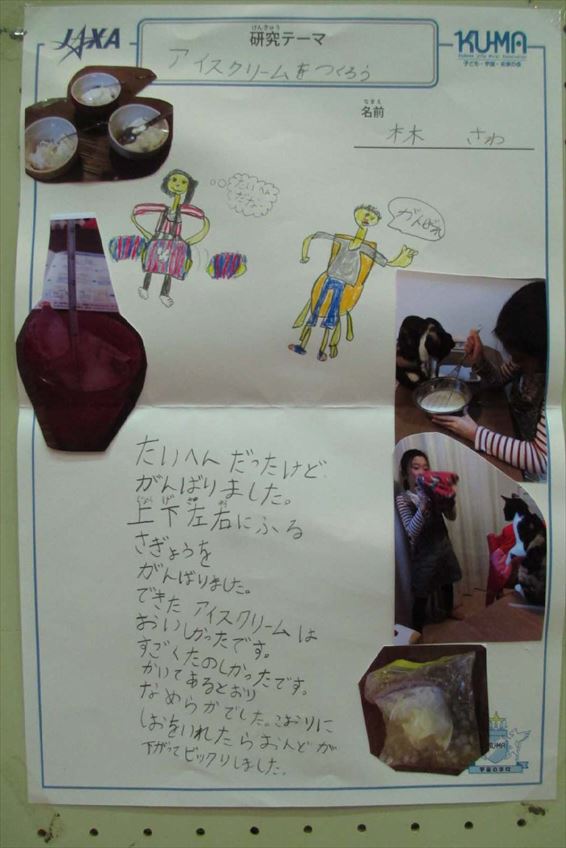 JAXA
けんきゅう
研究テーマ
アイスクリームをつくろう
KU-MA
子ども・宇宙・未来の会
なまえ
名前
林 さわ
たいへん
だな〜
がんばれ
たいへんだったけど
がんばりました。
じょうげさゆう
上下左右にふる
さぎょうを
がんばりました。
できたアイスクリームは
おいしかったです。
すごくたのしかったです。
かいてあるとおり
なめらかでした。こおりに
しおをいれたらおんどが
下がってビックリしました。
KU-MA
宇宙の学校